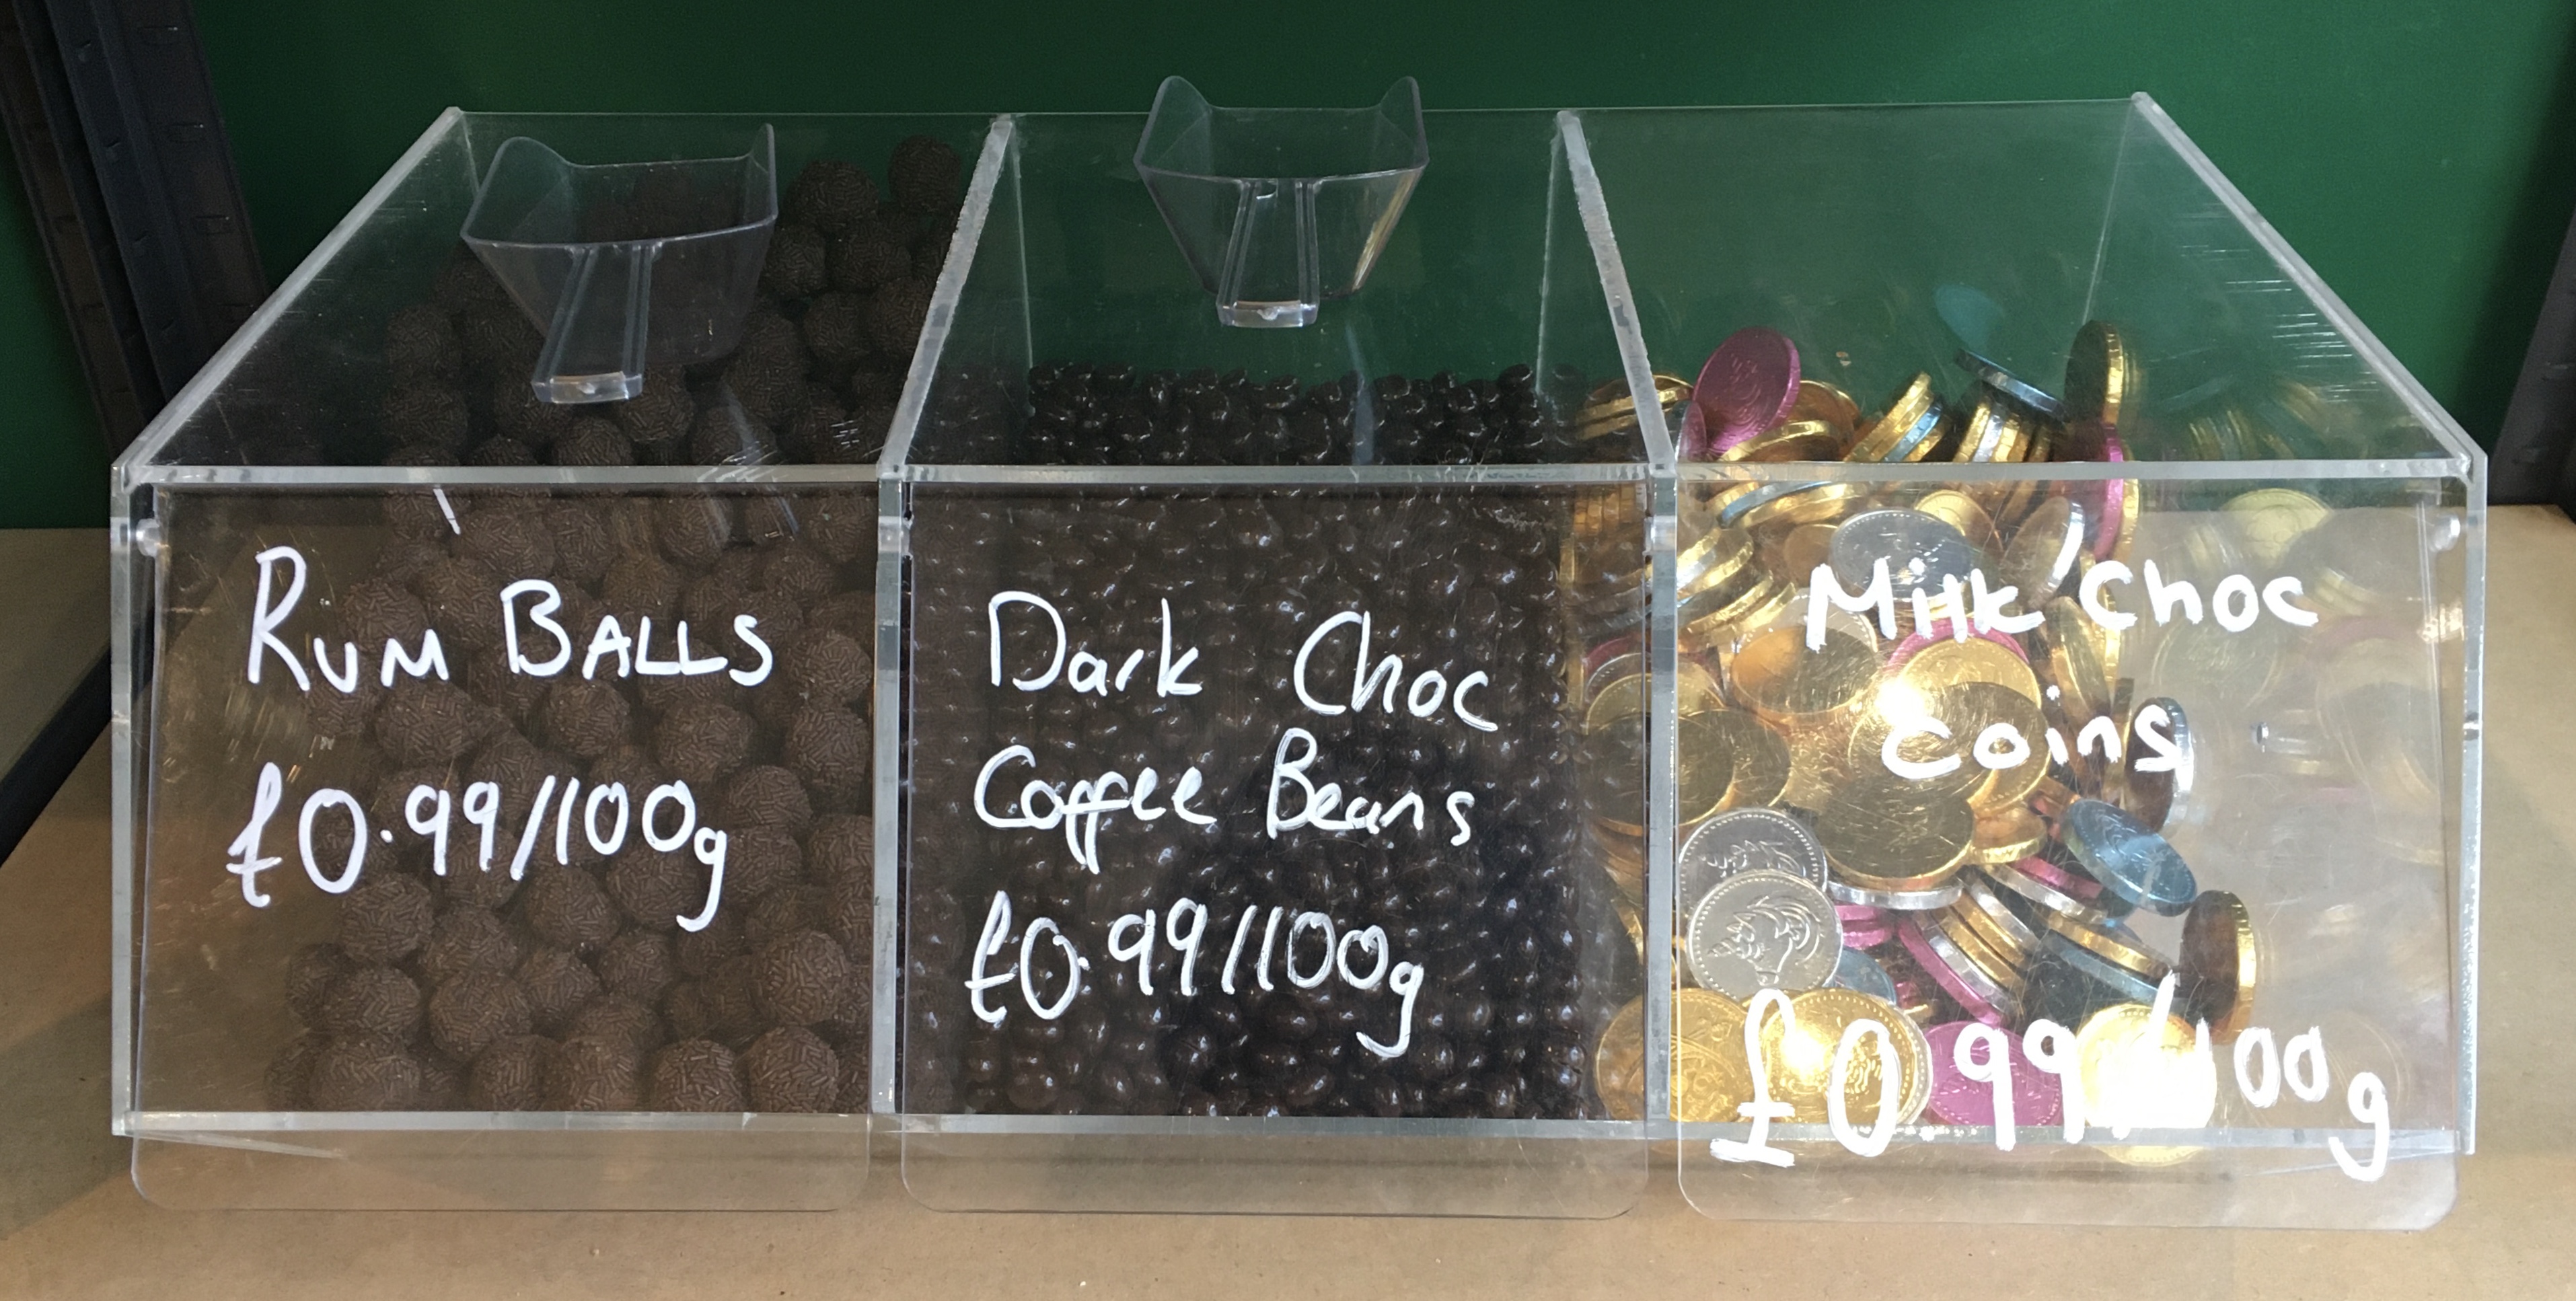 Rum Balls
£0.99/100g
Dark Choc
Coffee Beans
£0.99/100g
Milk Choc
coins
£0.99/100g